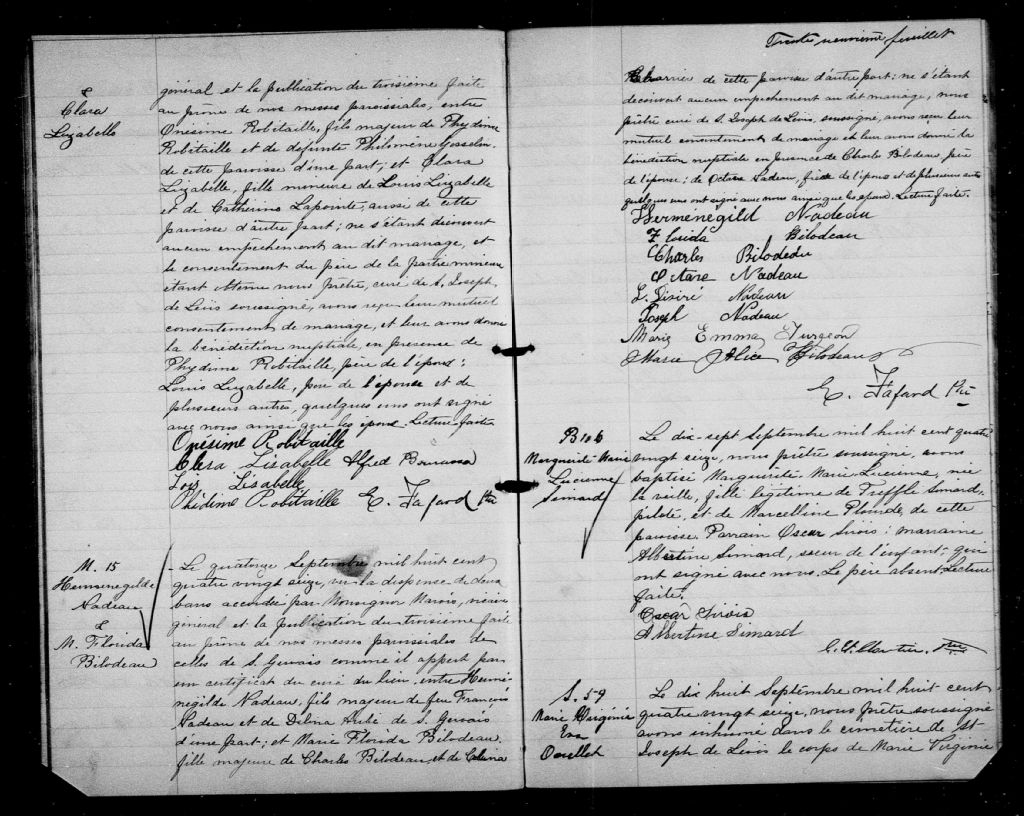 &
Clara
Lizabelle
général et la publication du troisième faite
au prône de nos messes paroissiales, entre
Onésime Robitaille, fils majeur de Phydime
Robitaille et de defunte Philomène Gosselin
de cette paroisse d'une part; et Clara
Lizabelle, fille mineure de Louis Lizabelle
et de Catherine Lapointe, aussi de cette
paroisse d'autre part; ne s'étant découvert
aucun empêchement au dit mariage, et
le consentement du père de la partie mineure
étant obtenu nous prêtre, curé de S. Joseph
de Lévis soussigné, avons reçu leur mutuel
consentement de mariage, et leur avons donné
la bénédiction nuptiale, en présence de
Phydime Robitaille, père de l'époux;
Louis Lizabelle, père de l'épouse et de
plusieurs autres, quelques uns ont signé
avec nous ainsi que les époux. Lecture faite
Onésime Robitaille
Clara Lisabelle Alfred
Lisabelle
Phédime Robitaille E. Fafard Ptre
M. 15
Hermenegilde
Nadeau
&
M. Florida
Bilodeau
Le quatorze Septembre mil huit cent
quatre vingt seize, vu la dispense de deux
bans accordée par Monsignor Marois, vicaire
général et la publication du troisième faite
au prône de nos messes paroissiales de
celles de S. Gervais comme il appert par
un certificat du curé du lieu, entre Hermé-
négilde Nadeau, fils majeur de feu François
Nadeau et de Délina Aubé de S. Gervais
d'une part; et Marie Florida Bilodeau
fille majeure de Charles Bilodeau et de Célina
Trente neuvième feuillet
de cette paroisse d'autre part: ne s'étant
découvert aucun empêchement au dit mariage, nous
prêtre curé de S. Joseph de Lévis, soussigné, avons reçu leur
mutuel consentement de mariage et leur avons donné la
bénédiction nuptiale en présence de Charles Bilodeau, père
de l'épouse; de Octave Nadeau, frère de l'époux et de plusieurs autres
quelques uns ont signé avec nous ainsi que les époux. Lecture faite.
Hermenegild Nadeau
Florida Bilodeau
Charles Bilodeau
Octave Nadeau
L. Désiré Nadeau
Joseph Nadeau
Marie Emma Turgeon
Marie Alice Bilodeau
E. Fafard Ptre
B 106
Marguerite Marie
Lucienne
Simard
Le dix-sept Septembre mil huit cent quatre
vingt seize, nous prêtre soussigné, avons
baptisé Marguerite Marie Lucienne, née
la veille, fille légitime de Treffle Simard,
pilote, et de Marcelline Plourde, de cette
paroisse. Parrain Oscar Sirois; marraine
Albertine Simard, soeur de l'enfant- qui
ont signé avec nous. Le père absent. Lecture
faite.
Oscar Sirois
Albertine Simard
Ptre
S. 59
Marie Virginie
Eva
Ouellet
Le dix huit Septembre mil huit cent
quatre vingt seize, nous prêtre soussigné
avons inhumé dans le cimetière de St
Joseph de Lévis le corps de Marie Virginie